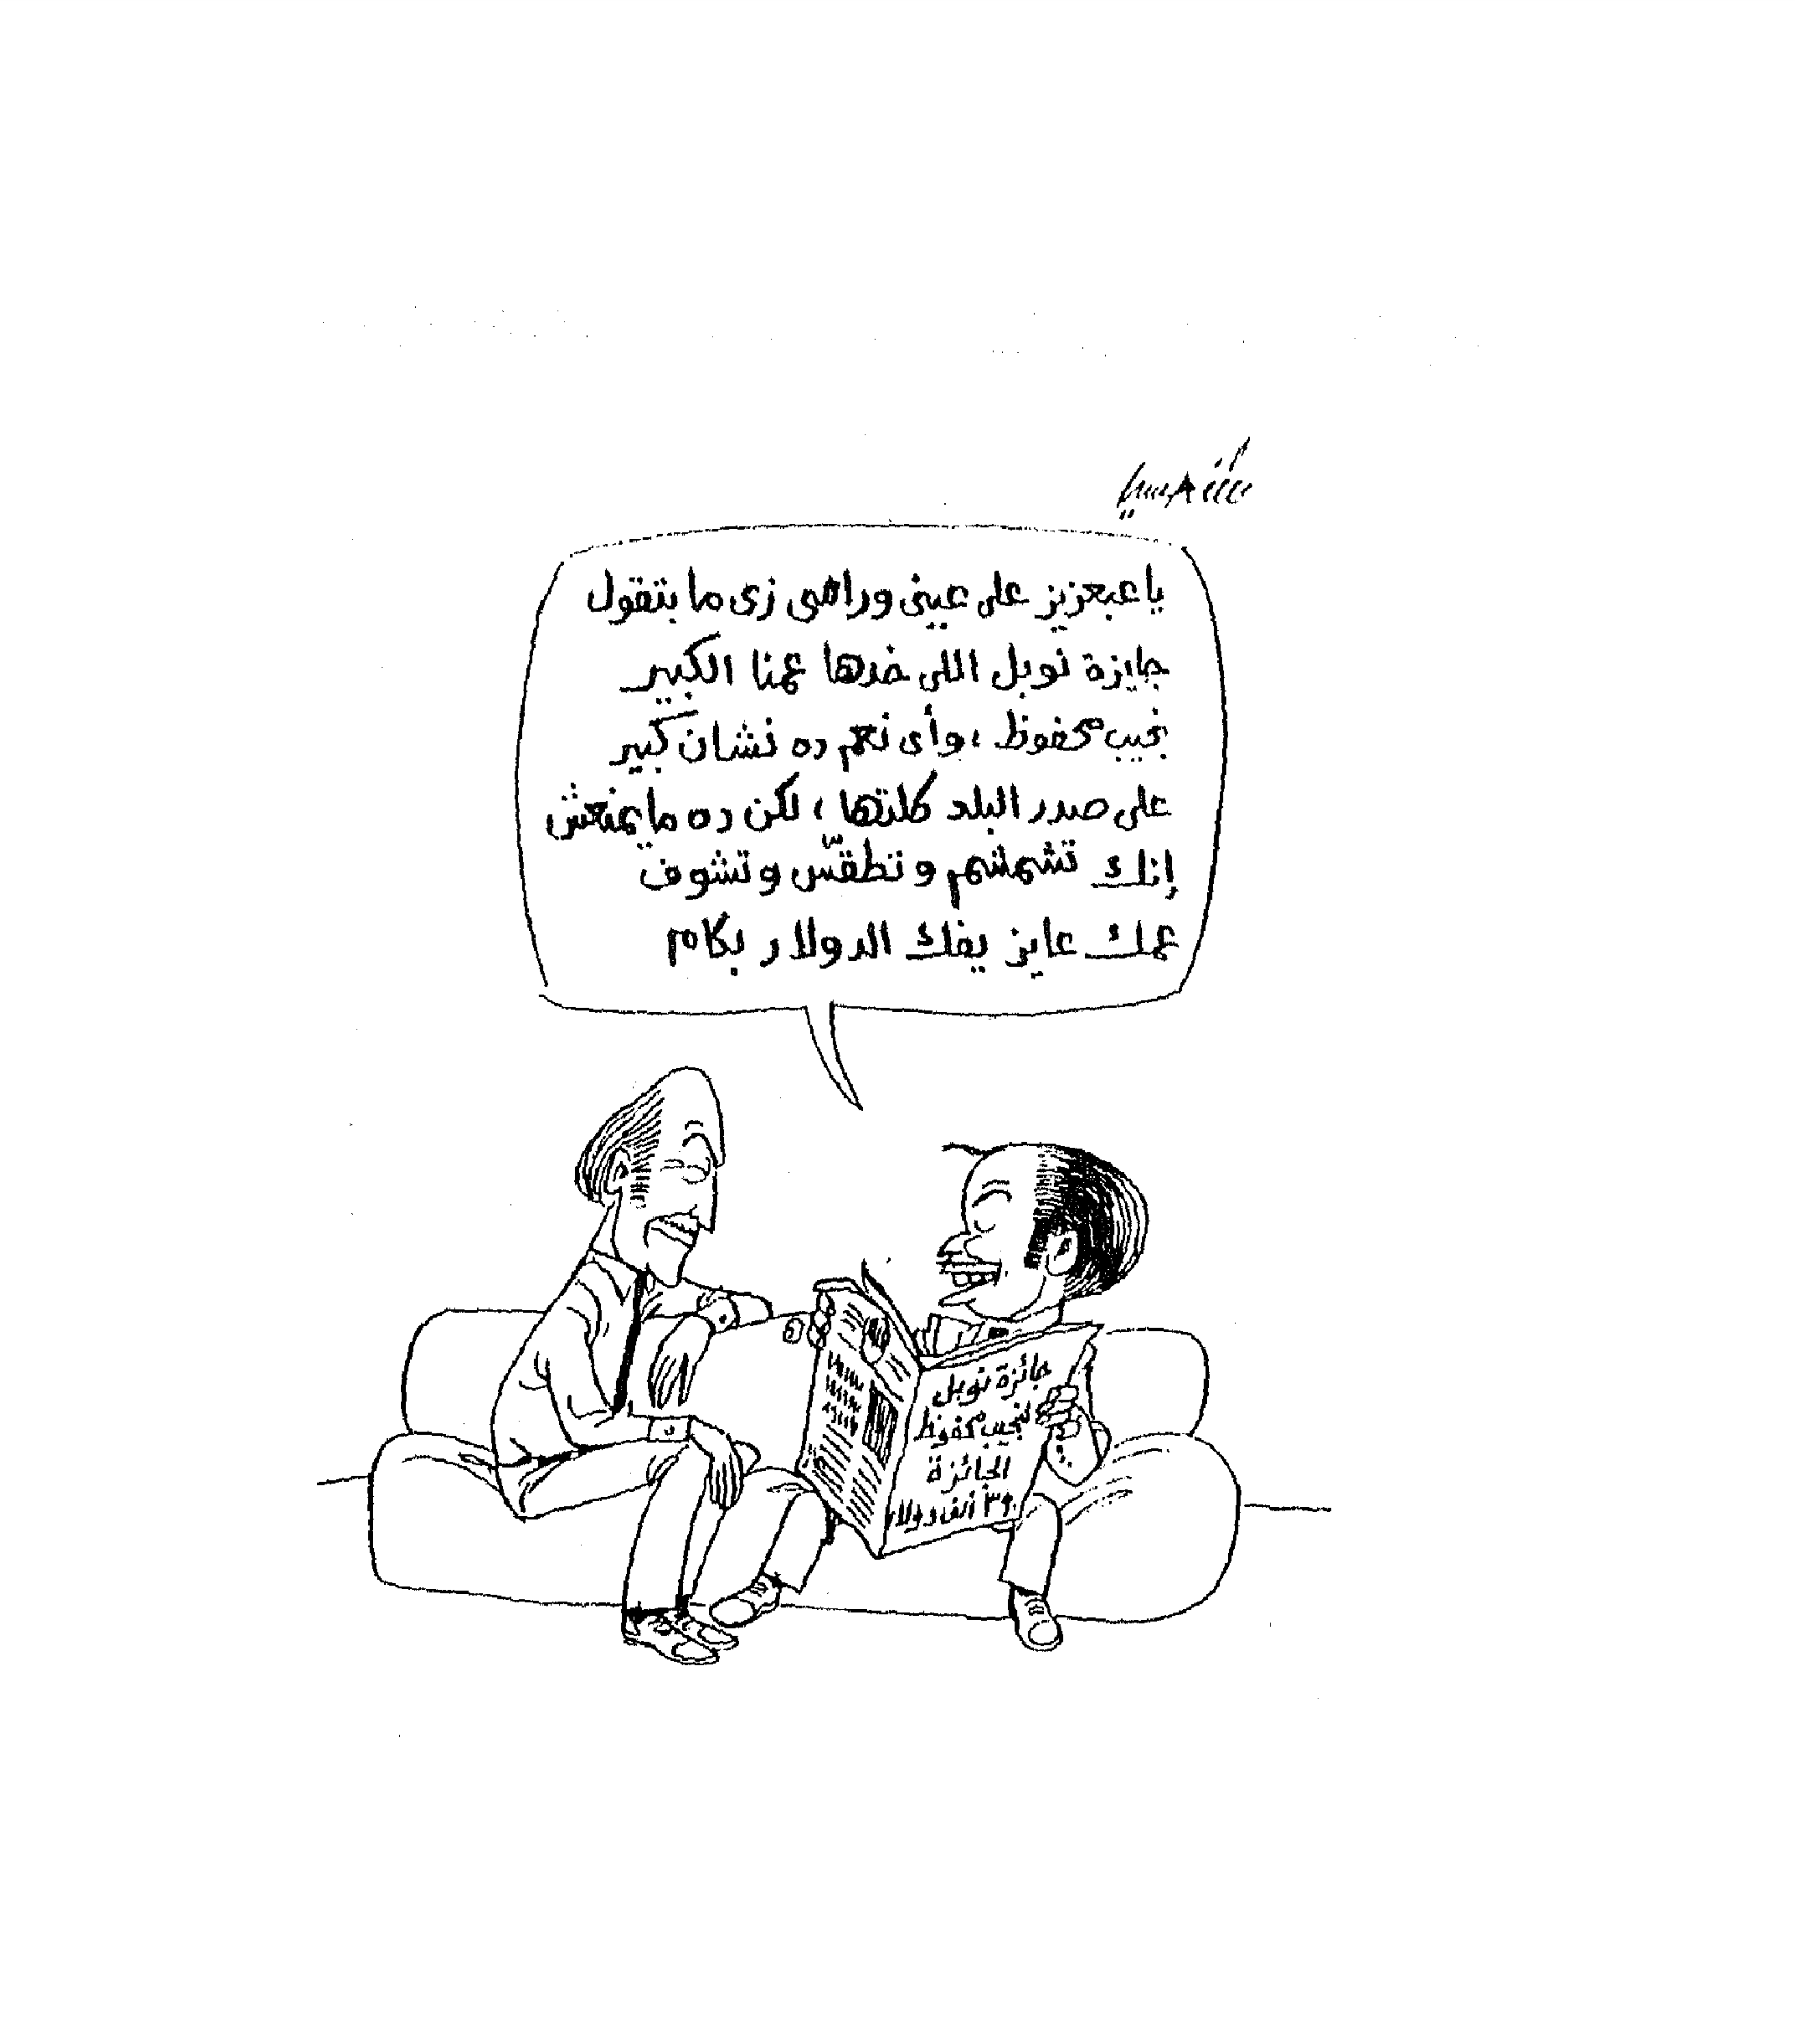 يا عبعزيز على عينى وراسى زى ما بتقول
جايزة نوبل اللى خدها عمنا الكبير
نجيب محفوظ ، وأى نعم ده نشان كبير
على صدر البلد كلتها ، لكن ده مايمنعش
إنك تشمشم وتطقّس وتشوف
عمك عايز يفك الدولار بكام
جائزة نوبل
لنجيب محفوظ
الجائزة
ألف دولار